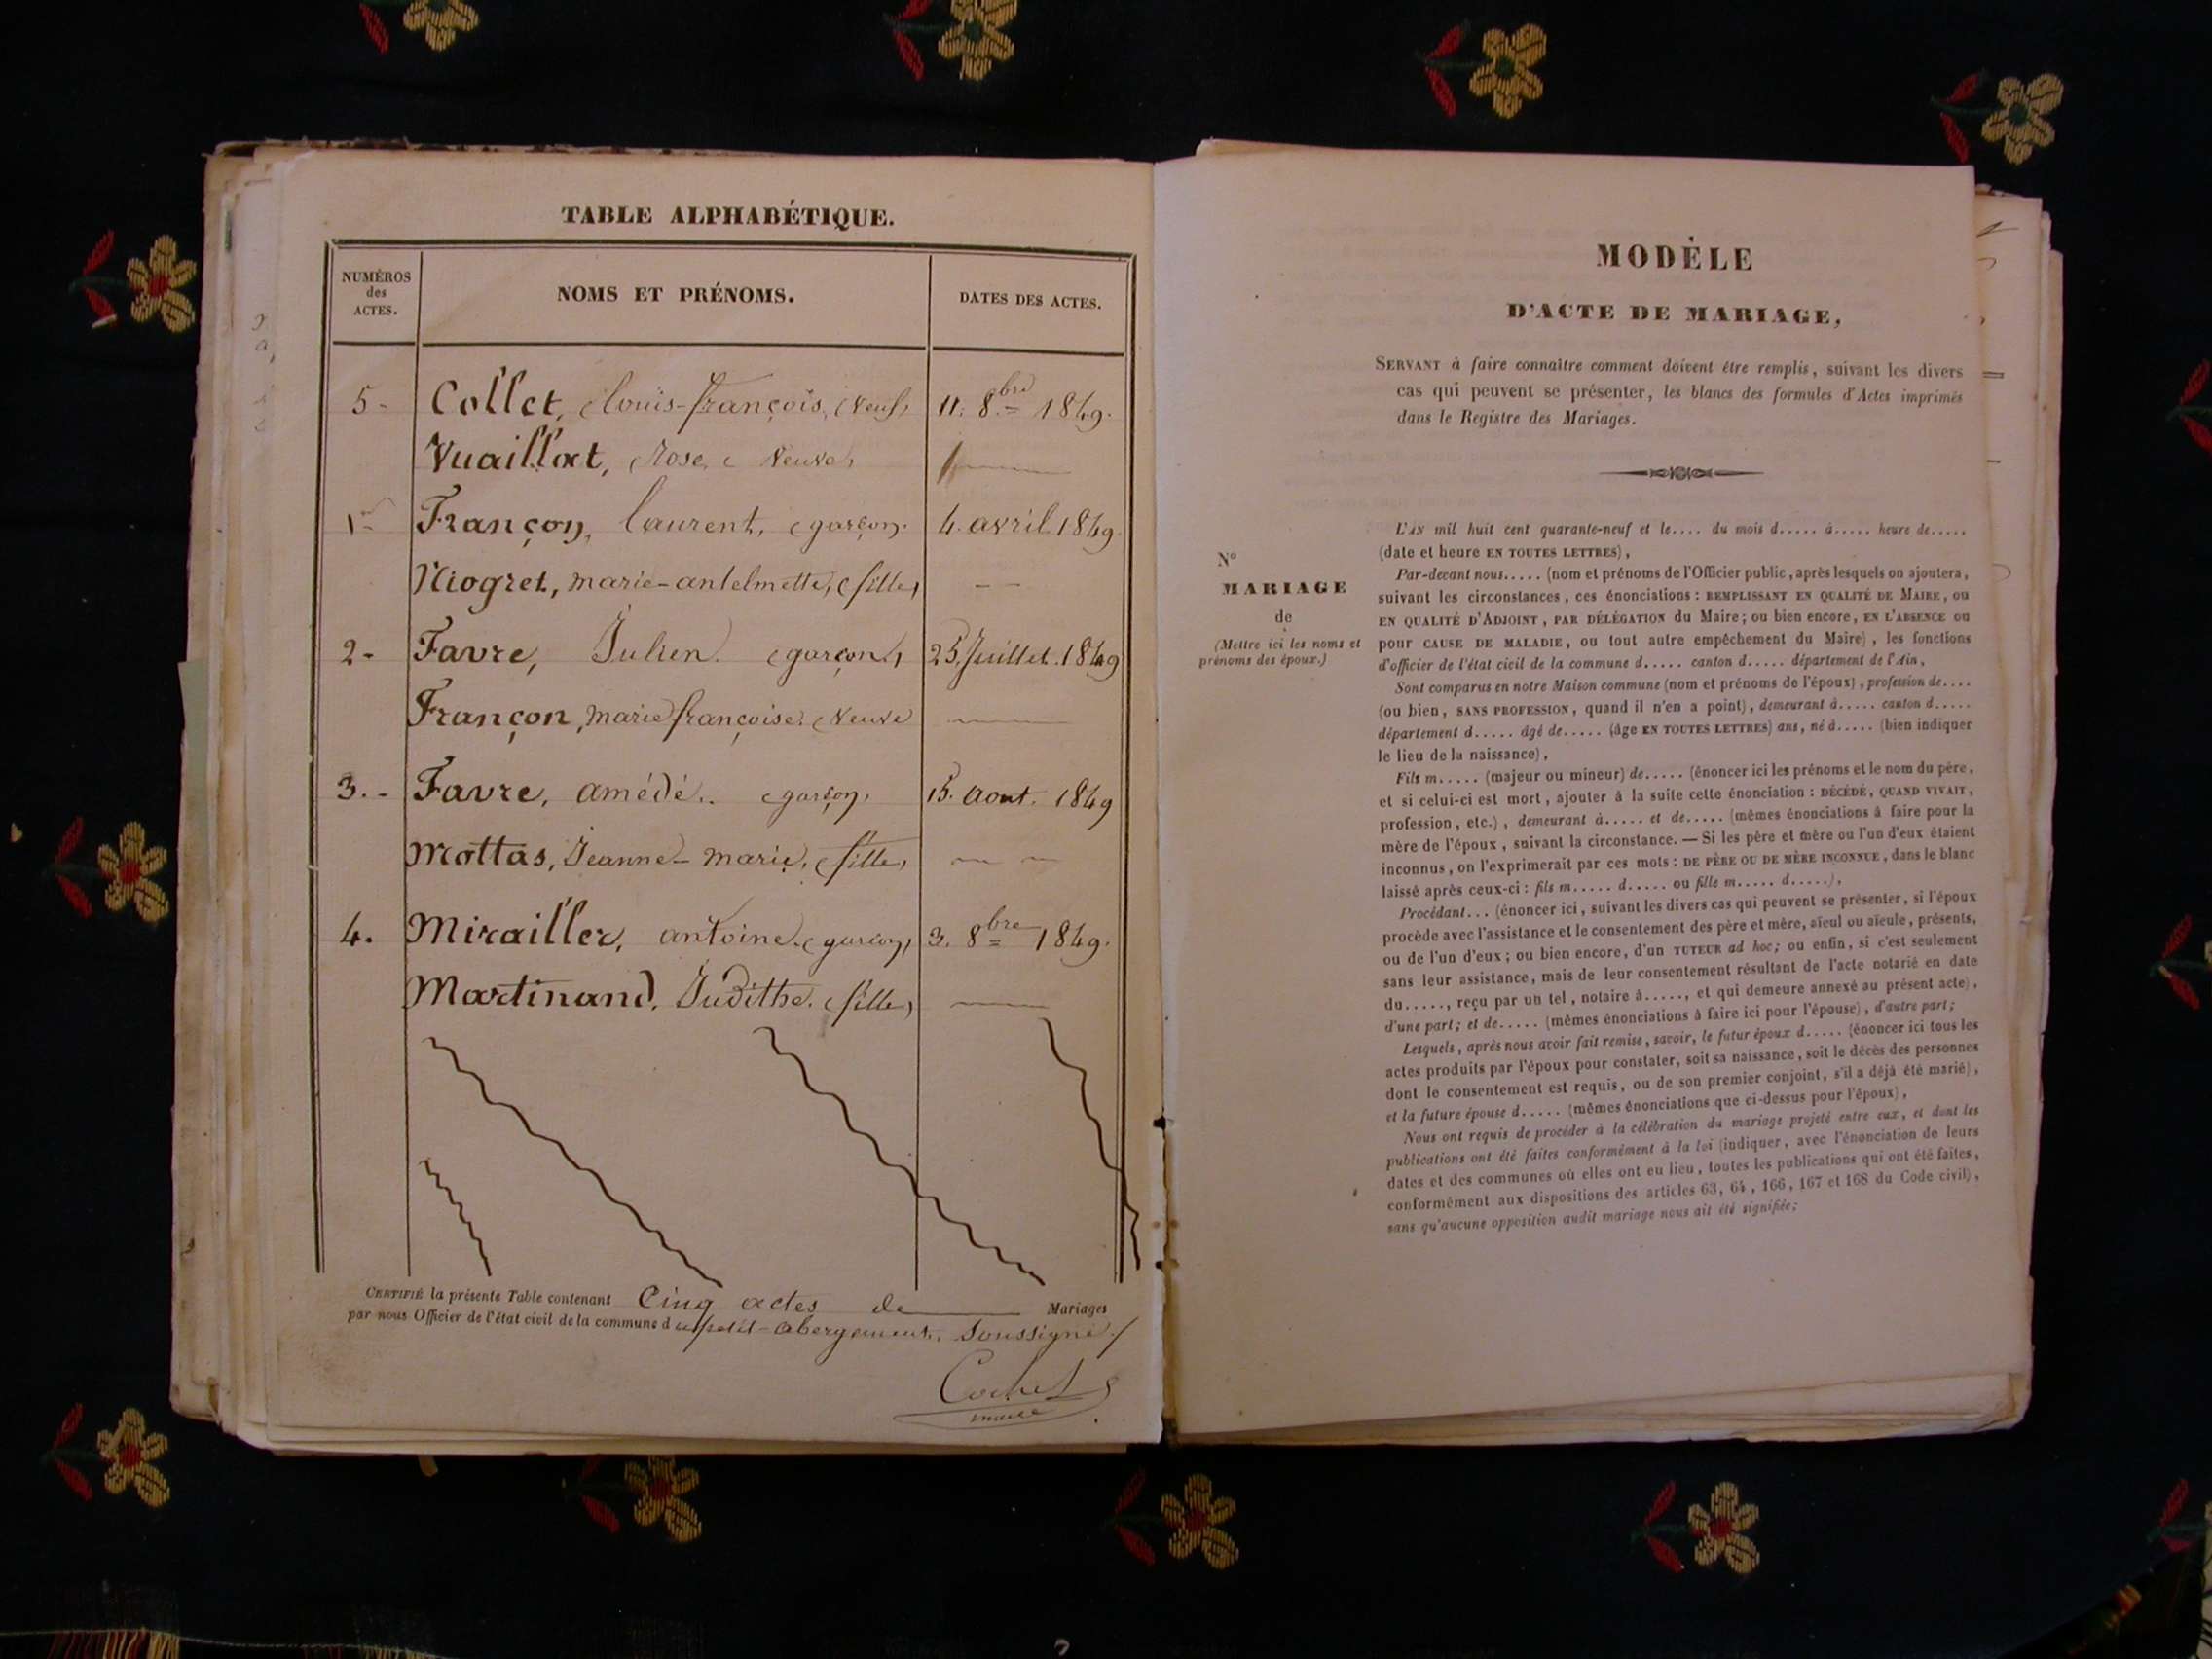 TABLE ALPHABÉTIQUE.
NUMÉROS
des
ACTES.
NOMS ET PRÉNOMS.
DATES DES ACTES.
5- Collet, Louis-françois, veuf, 11. 8bre 1849.
Vuaillat, Rose, veuve,
1er Françon, Laurent, garçon. 4. avril. 1849.
Niogret, marie-antelmette, fille,
2- Favre, Julien. garçon, 25. Juillet. 1849
Françon, marie françoise. veuve
3.- Favre, amédé.. garçon, 15. aout. 1849
Mottas, Jeanne-marie, fille,
4. Mirailler, antoine. garçon, 3. 8bre 1849.
Martinand, Judithe. fille,
CERTIFIÉ la présente Table contenant Cinq actes de Mariages
par nous Officier de l'état civil de la commune du petit-abergement, soussigné./
Cochet
maire
MODÈLE
D'ACTE DE MARIAGE,
SERVANT à faire connaître comment doivent être remplis, suivant les divers
cas qui peuvent se présenter, les blancs des formules d'Actes imprimés
dans le Registre des Mariages.
N°
MARIAGE
de
(Mettre ici les noms et
prénoms des époux.)
L'AN mil huit cent quarante-neuf et le.... du mois d..... à..... heure de.....
(date et heure EN TOUTES LETTRES),
Par-devant nous..... (nom et prénoms de l'Officier public, après lesquels on ajoutera,
suivant les circonstances, ces énonciations : REMPLISSANT EN QUALITÉ DE MAIRE, ou
EN QUALITÉ D'ADJOINT, PAR DÉLÉGATION du Maire; ou bien encore, EN L'ABSENCE ou
pour CAUSE DE MALADIE, ou tout autre empêchement du Maire), les fonctions
d'officier de l'état civil de la commune d..... canton d..... département de l'Ain,
Sont comparus en notre Maison commune (nom et prénoms de l'époux), profession de....
(ou bien, SANS PROFESSION, quand il n'en a point), demeurant à..... canton d.....
département d..... âgé de..... (âge EN TOUTES LETTRES) ans, né à..... (bien indiquer
le lieu de la naissance),
Fils m..... (majeur ou mineur) de..... (énoncer ici les prénoms et le nom du père,
et si celui-ci est mort, ajouter à la suite cette énonciation : DÉCÉDÉ, QUAND VIVAIT,
profession, etc.), demeurant à..... et de..... (mêmes énonciations à faire pour la
mère de l'époux, suivant la circonstance. — Si les père et mère ou l'un d'eux étaient
inconnus, on l'exprimerait par ces mots : DE PÈRE OU DE MÈRE INCONNUE, dans le blanc
laissé après ceux-ci : fils m..... d..... ou fille m..... d.....),
Procédant... (énoncer ici, suivant les divers cas qui peuvent se présenter, si l'époux
procède avec l'assistance et le consentement des père et mère, aïeul ou aïeule, présents,
ou de l'un d'eux; ou bien encore, d'un TUTEUR ad hoc; ou enfin, si c'est seulement
sans leur assistance, mais de leur consentement résultant de l'acte notarié en date
du....., reçu par un tel, notaire à....., et qui demeure annexé au présent acte),
d'une part; et de..... (mêmes énonciations à faire ici pour l'épouse), d'autre part;
Lesquels, après nous avoir fait remise, savoir, le futur époux d..... (énoncer ici tous les
actes produits par l'époux pour constater, soit sa naissance, soit le décès des personnes
dont le consentement est requis, ou de son premier conjoint, s'il a déjà été marié),
et la future épouse d..... (mêmes énonciations que ci-dessus pour l'époux),
Nous ont requis de procéder à la célébration du mariage projeté entre eux, et dont les
publications ont été faites conformément à la loi (indiquer, avec l'énonciation de leurs
dates et des communes où elles ont eu lieu, toutes les publications qui ont été faites,
conformément aux dispositions des articles 63, 64, 166, 167 et 168 du Code civil),
sans qu'aucune opposition audit mariage nous ait été signifiée;